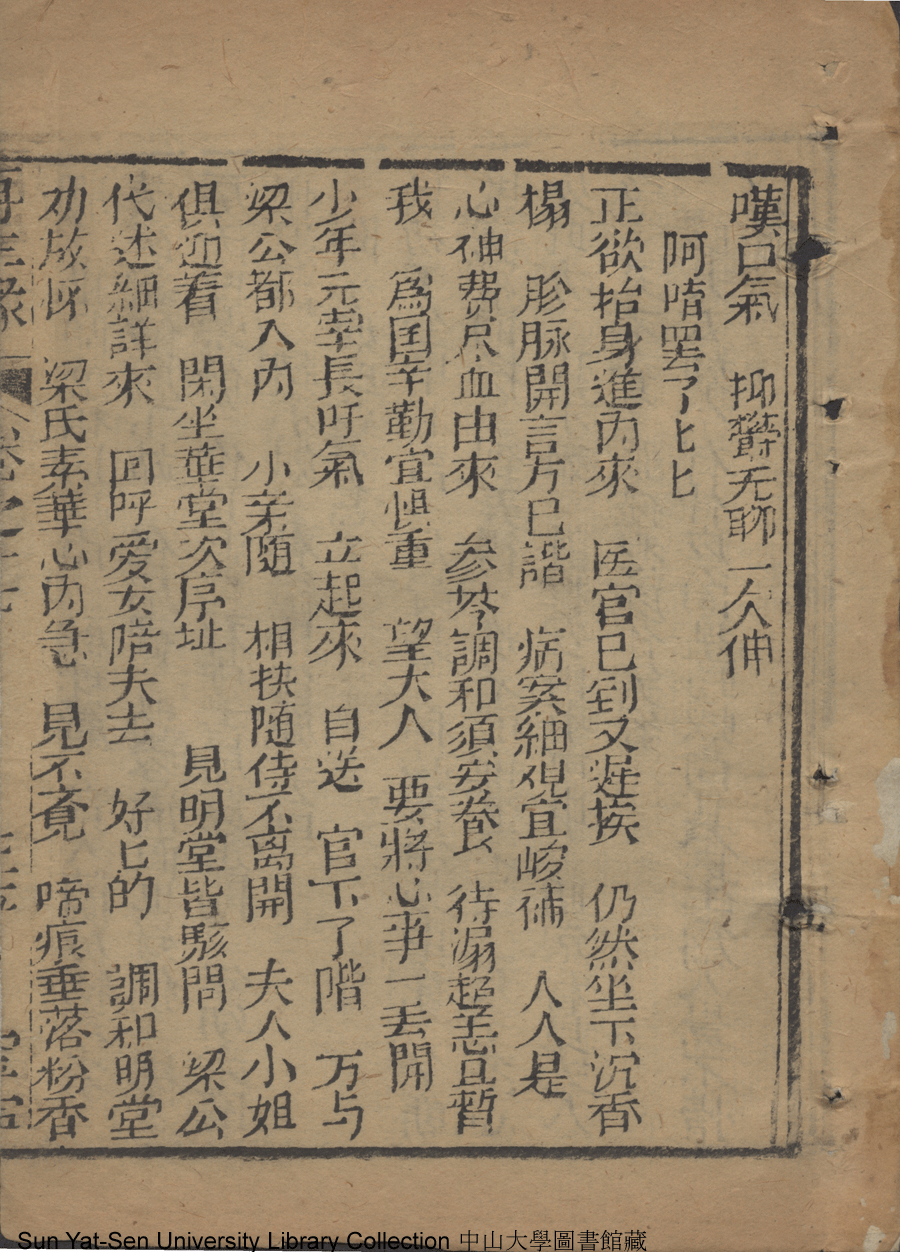 嘆口氣 抑欝无聊一欠伸
阿唷罢了匕匕
正欲抬身進內來 医官已到又遲挨 仍然坐下沉香
榻 胗脉開言方已諧 病案細观宜峻補 人人是
心神费尽血由來 参苓調和須安養 待漏趋 且暫
我 爲国辛勤宜慎重 望大人 要將心事一丢開
少年元宰長吁氣 立起來 自送 官下了階 万与
梁公都入內 小 随 相扶随侍不离開 夫人小姐
俱迎着 閑坐華堂次序 見明堂皆駭問 梁公
代述細詳來 回呼爱女陪夫去 好匕的 調和明堂
劝放怀 梁氏素華心內急 見不竟 啼痕垂落粉香
再生緣 卷之十七
Sun Yat-Sen University Library Collection 中山大學圖書館藏